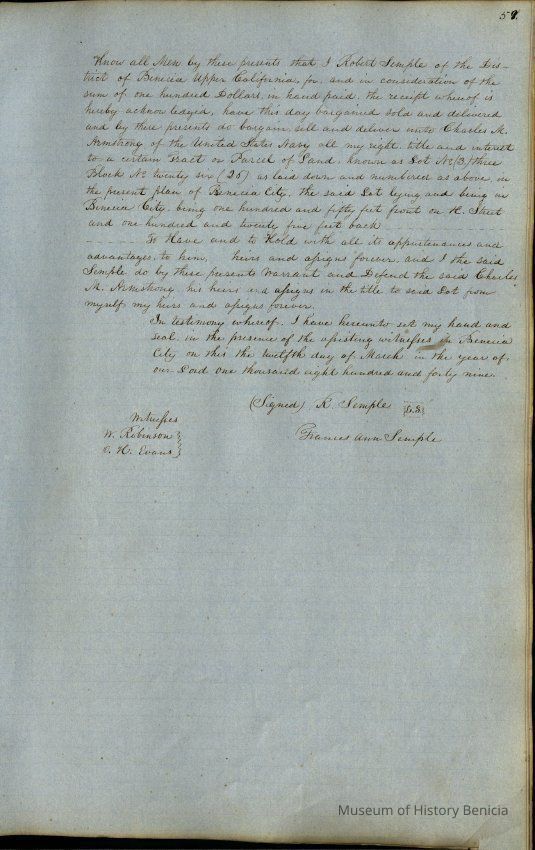 59.
Know all Men by these presents that I Robert Semple of the Dis-
trict of Benicia Upper California, for, and in consideration of the
sum of one hundred Dollars, in hand paid, the receipt whereof is
hereby acknowledged, have this day bargained sold and delivered
and by these presents do bargain, sell and deliver unto Charles M.
Armstrong of the United States Navy all my right, title and interest
to a certain Tract or Parcel of Land, known as Lot No (3) three
Block No twenty six (26) as laid down and numbered as above in
the present plan of Benicia City. The said Lot lying and being in
Benicia City, being one hundred and fifty feet front on H. Street
and one hundred and twenty five feet back
To Have and to Hold with all its appurtenances and
advantages, to him, heirs and assigns forever, and I the said
Semple do by these presents Warrant and Defend the said Charles
M. Armstrong, his heirs and assigns in the title to said Lot from
myself my heirs and assigns forever.
In testimony whereof, I have hereunto set my hand and
seal, in the presence of the assisting witnesses in Benicia
City on this the twelfth day of March in the year of
our Lord one thousand eight hundred and forty nine.
(Signed) R. Semple L.S.
Witnesses
W. Robinson
H. Evans
Frances Ann Semple
Museum of History Benicia